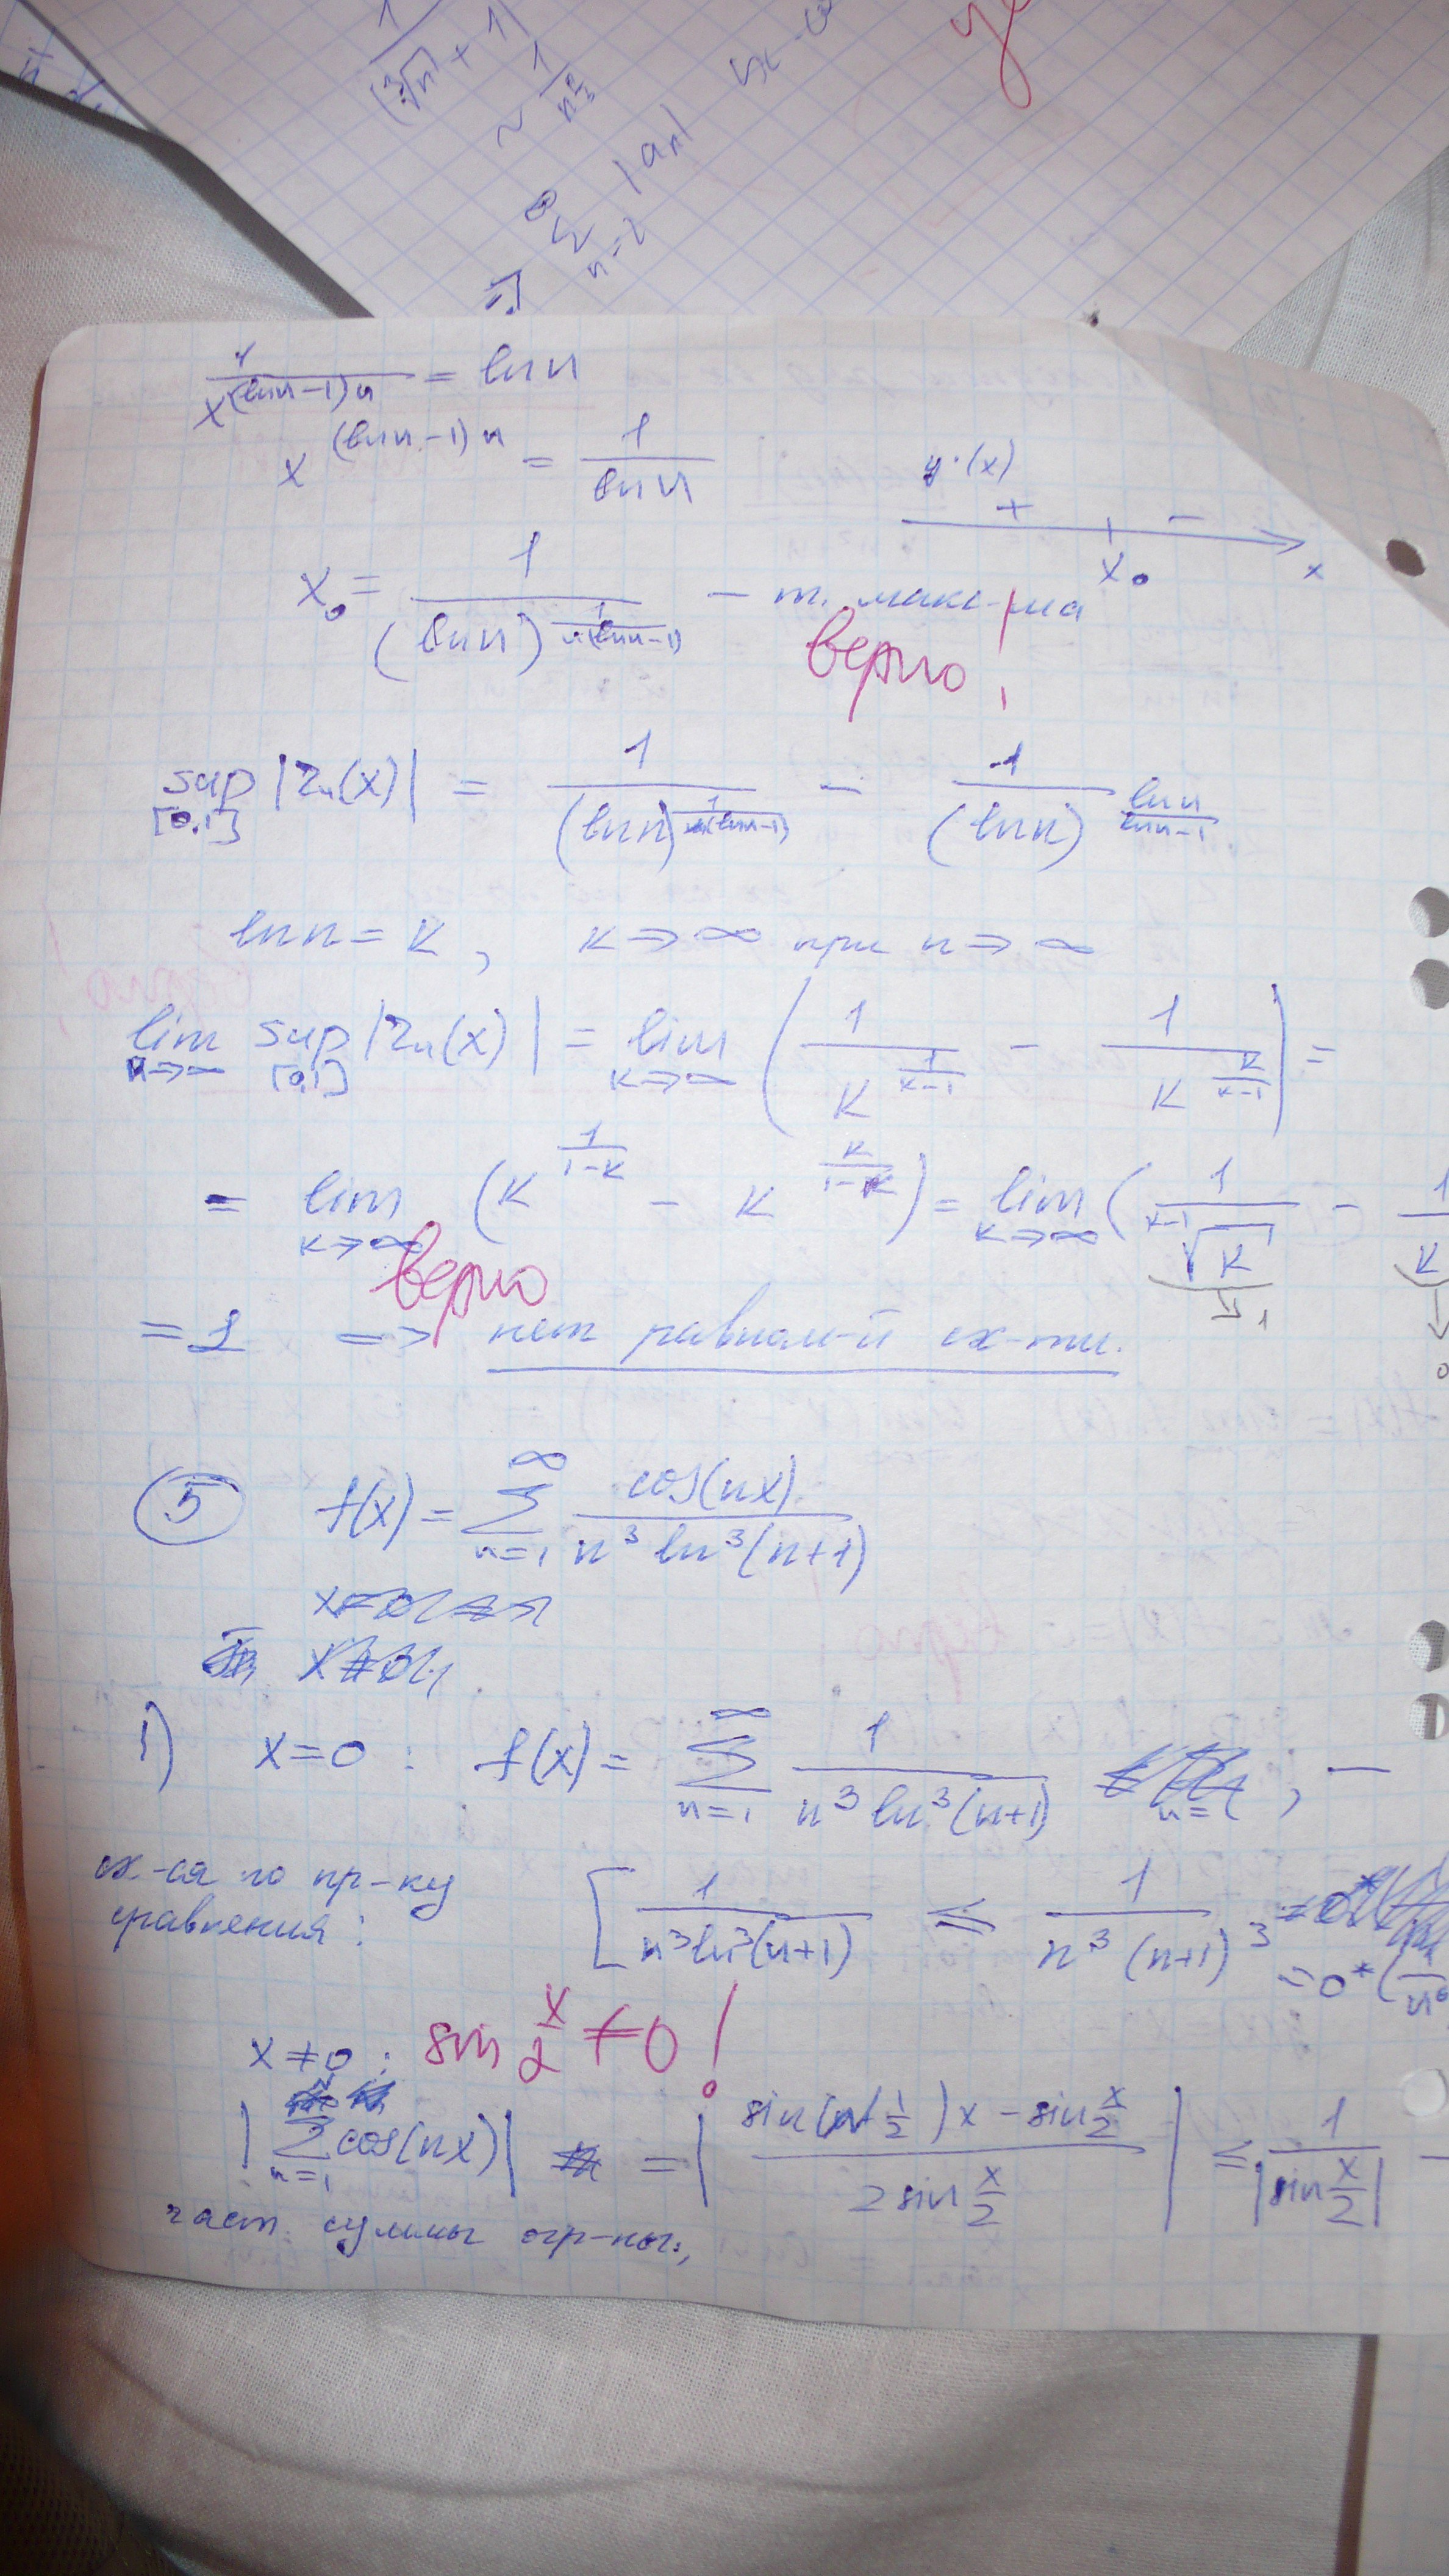 1/(∛n + 1)
~ 1/n^
∞ Σ n=2 |aₙ|
1/x^((ln n −1) n) = ln n
x^((ln n −1) n) = 1/ln n
y'(x)
+ −
x₀ x
x₀ = 1/(ln n)^(1/(n(ln n −1))) – т. макс-ма
верно!
sup [0,1] |rₙ(x)| = 1/(ln n)^(1/(ln n −1)) − 1/(ln n)^(ln n/(ln n −1))
ln n = k, k → ∞ при n → ∞
lim n→∞ sup [0,1] |rₙ(x)| = lim k→∞ (1/k^(1/(k−1)) − 1/k^(k/(k−1))) =
= lim k→∞ (k^(1/(1−k)) − k^(k/(1−k))) = lim k→∞ (1/ᵏ⁻¹√k − 1/k
→1 → 0
верно
= 1 => нет равном-й сх-ти.
⑤ f(x) = ∞ Σ n=1 cos(nx)/(n³ ln³(n+1))
1) x=0 : f(x) = ∞ Σ n=1 1/(n³ ln³(n+1)) , –
сх-ся по пр-ку
сравнения :
[ 1/(n³ ln³(n+1)) ≤ 1/(n³ (n+1)³
= 0*(1/n⁶
x ≠ 0 : sin x/2 ≠ 0 !
|Σ n=1 cos(nx)| = |(sin(n+1/2)x − sin x/2)/(2 sin x/2)| ≤ 1/|sin x/2| –
част. суммы огр-ны,